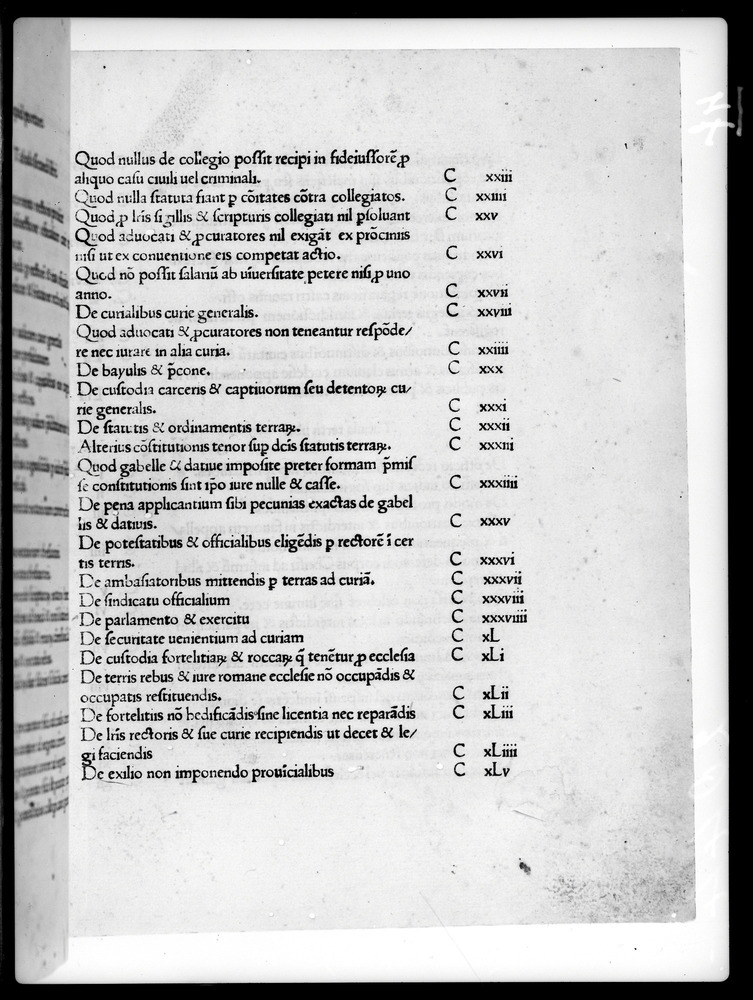 Quod nullus de collegio poſſit recipi in fideiuſſorē ꝓ
aliquo caſu ciuili uel criminali. C xxiii
Quod nulla ſtatuta fiant ꝑ cōitates cōtra collegiatos. C xxiiii
Quod ꝓ lris ſigillis & ſcripturis collegiati nil pſoluant C xxv
Quod aduocati & ꝓcuratores nil exigāt ex prōcintis
niſi ut ex conuentione eis competat actio. C xxvi
Quod nō poſſit ſalariū ab uīuerſitate petere niſi ꝓ uno
anno. C xxvii
De curialibus curie generalis. C xxviii
Quod aduocati & ꝓcuratores non teneantur reſpōde/
re nec iurare in alia curia. C xxiiii
De bayulis & p̄cone. C xxx
De cuſtodia carceris & captiuorum ſeu detentoꝝ cu/
rie generalis. C xxxi
De ſtatutis & ordinamentis terraꝝ. C xxxii
Alterius cōſtitutionis tenor ſuꝑ dcīs ſtatutis terraꝝ. C xxxiii
Quod gabelle & datiue impoſite preter formam p̄miſ
ſe conſtitutionis ſint ip̄o iure nulle & caſſe. C xxxiiii
De pena applicantium ſibi pecunias exactas de gabel
lis & datiuis. C xxxv
De poteſtatibus & officialibus eligēdis ꝑ rectorē ī cer
tis terris. C xxxvi
De ambaſiatoribus mittendis ꝑ terras ad curiā. C xxxvii
De ſindicatu officialium C xxxviii
De parlamento & exercitu C xxxviiii
De ſecuritate uenientium ad curiam C xL
De cuſtodia fortelitiaꝝ & roccaꝝ q̄ tenētur ꝓ eccleſia C xLi
De terris rebus & iure romane eccleſie nō occupādis &
occupatis reſtituendis. C xLii
De fortelitiis nō hedificādis ſine licentia nec reparādis C xLiii
De lrīs rectoris & ſue curie recipiendis ut decet & le/
gi faciendis C xLiiii
De exilio non imponendo prouīcialibus C xLv